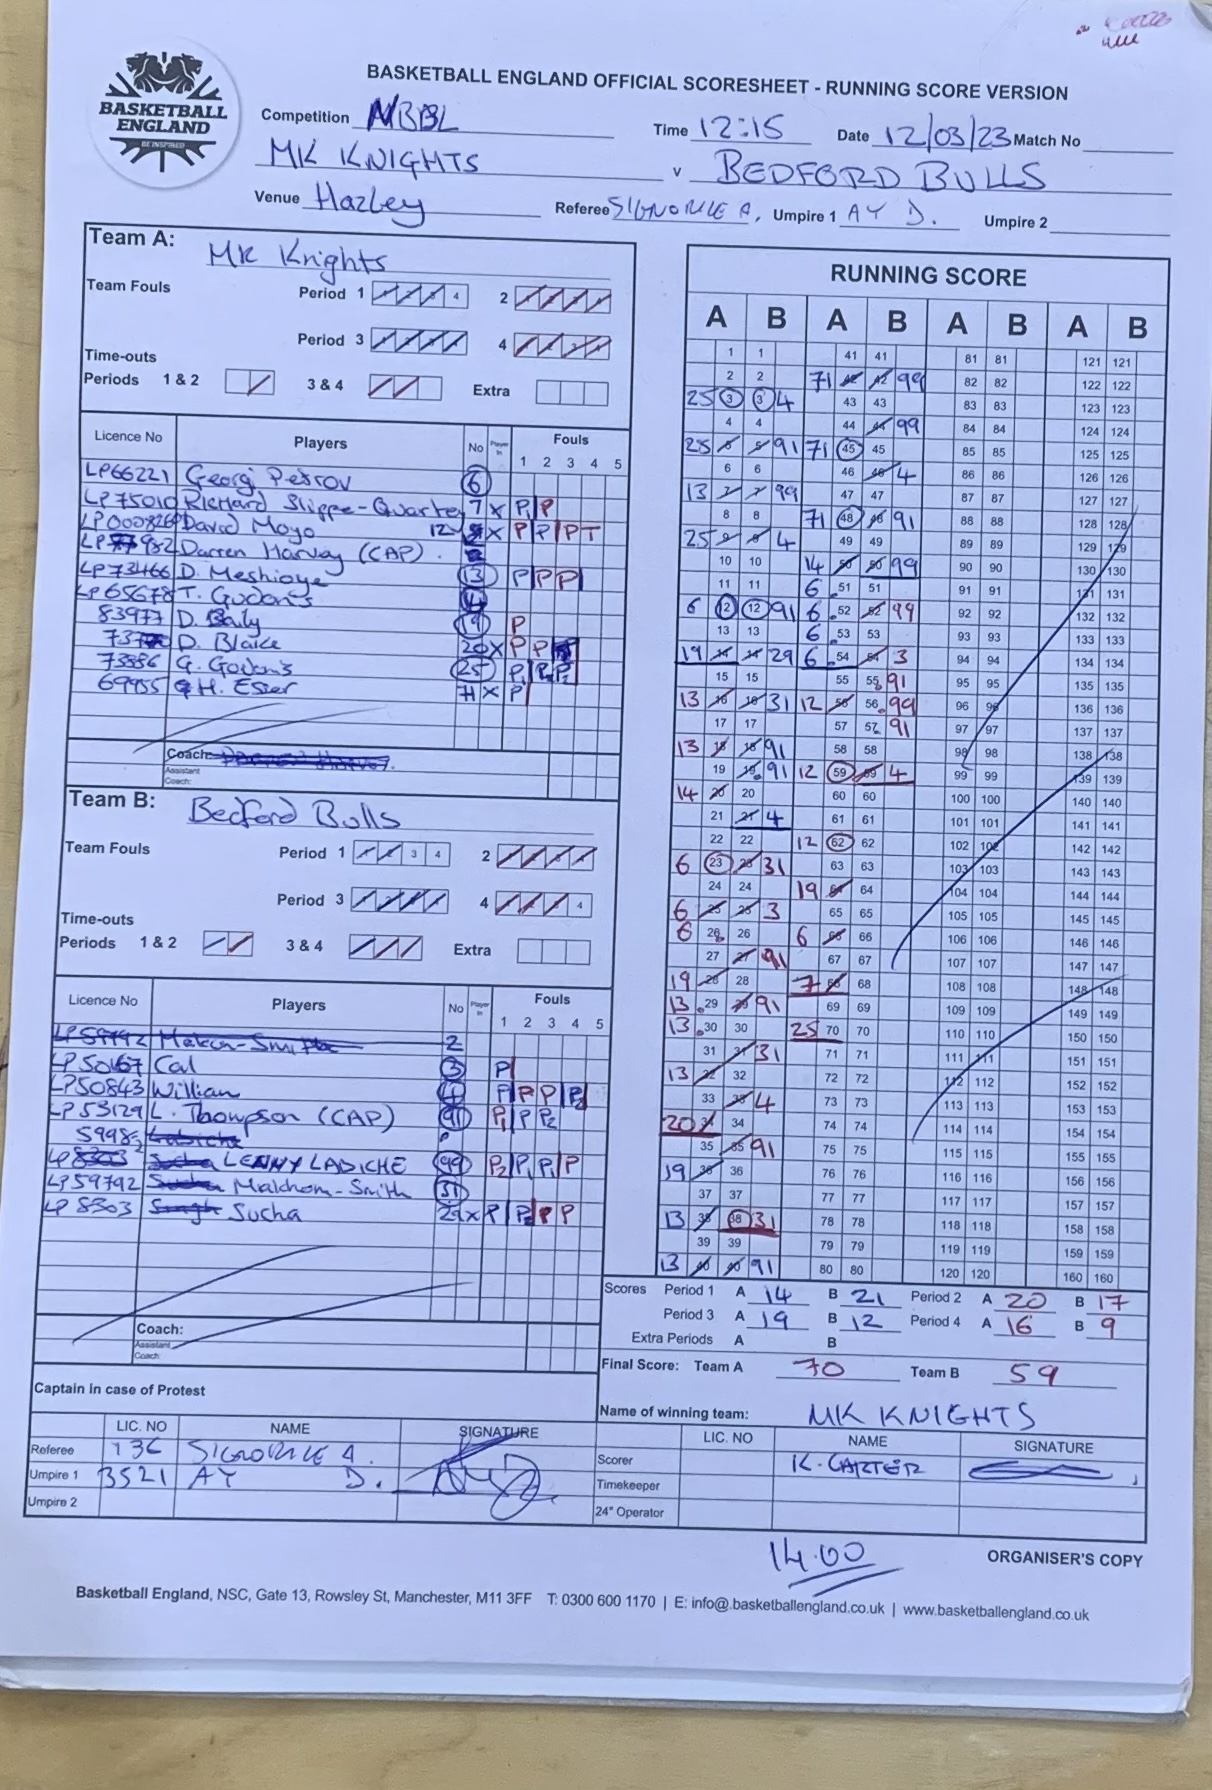 BASKETBALL ENGLAND
BE INSPIRED
BASKETBALL ENGLAND OFFICIAL SCORESHEET - RUNNING SCORE VERSION
Competition NBBL Time 12:15 Date 12/03/23 Match No
MK KNIGHTS v BEDFORD BULLS
Venue Hazley Referee SIGNORILE A. Umpire 1 AY D. Umpire 2
Team A: MK Knights
Team Fouls Period 1 4 2
Period 3 4
Time-outs
Periods 1 & 2 3 & 4 Extra
Licence No Players No Player in Fouls
1 2 3 4 5
LP66221 Georgi Petrov 6
LP75010 Richard Slippe-Quartey 7 X P P
LP000826 David Moyo 12 X P P P T
982 Darren Harvey (CAP)
LP73466 D. Meshioye 13 P P P
LP65678 T. Godon's
83977 D. Baily 19 P
D. Blake 20 X P P
73886 G. Godon's 25 P1 P2 P2
69955 H. Ester 71 X P
Coach:
Assistant Coach:
Team B: Bedford Bulls
Team Fouls Period 1 3 4 2
Period 3 4 4
Time-outs
Periods 1 & 2 3 & 4 Extra
Licence No Players No Player in Fouls
1 2 3 4 5
LP59792 Malcom-Smith 2
LP50167 Cal 3 P
LP50843 Willian 4 P P P P2
LP53129 L. Thompson (CAP) 91 P1 P P2
5998
LENNY LADICHE 99 P2 P1 P1 P
LP59792 Malchom-Smith 31
LP8303 Sucha 29 X P P2 P P
Coach:
Assistant Coach:
Captain in case of Protest
LIC. NO NAME SIGNATURE
Referee 736 SIGNORILE A.
Umpire 1 3521 AY D.
Umpire 2
RUNNING SCORE
A B A B A B A B
1 1 41 41 81 81 121 121
2 2 71 42 42 99 82 82 122 122
25 3 3 4 43 43 83 83 123 123
4 4 44 44 99 84 84 124 124
25 5 5 91 71 45 45 85 85 125 125
6 6 46 46 4 86 86 126 126
13 7 7 99 47 47 87 87 127 127
8 8 71 48 48 91 88 88 128 128
25 9 9 4 49 49 89 89 129 129
10 10 14 50 50 99 90 90 130 130
11 11 6 51 51 91 91 131 131
6 12 12 91 6 52 52 99 92 92 132 132
13 13 6 53 53 93 93 133 133
19 14 14 29 6 54 54 3 94 94 134 134
15 15 55 55 91 95 95 135 135
13 16 16 31 12 56 56 99 96 96 136 136
17 17 57 57 91 97 97 137 137
13 18 18 91 58 58 98 98 138 138
19 19 91 12 59 59 4 99 99 139 139
14 20 20 60 60 100 100 140 140
21 21 4 61 61 101 101 141 141
22 22 12 62 62 102 102 142 142
6 23 23 31 63 63 103 103 143 143
24 24 19 64 64 104 104 144 144
6 25 25 3 65 65 105 105 145 145
6 26 26 6 66 66 106 106 146 146
27 27 91 67 67 107 107 147 147
19 28 28 7 68 68 108 108 148 148
13 29 29 91 69 69 109 109 149 149
13 30 30 25 70 70 110 110 150 150
31 31 31 71 71 111 111 151 151
13 32 32 72 72 112 112 152 152
33 33 4 73 73 113 113 153 153
20 34 34 74 74 114 114 154 154
35 35 91 75 75 115 115 155 155
19 36 36 76 76 116 116 156 156
37 37 77 77 117 117 157 157
13 38 38 31 78 78 118 118 158 158
39 39 79 79 119 119 159 159
13 40 40 91 80 80 120 120 160 160
Scores Period 1 A 14 B 21 Period 2 A 20 B 17
Period 3 A 19 B 12 Period 4 A 16 B 9
Extra Periods A B
Final Score: Team A 70 Team B 59
Name of winning team: MK KNIGHTS
LIC. NO NAME SIGNATURE
Scorer K. CARTER
Timekeeper
24" Operator
14.00
ORGANISER'S COPY
Basketball England, NSC, Gate 13, Rowsley St, Manchester, M11 3FF T: 0300 600 1170 | E: info@.basketballengland.co.uk | www.basketballengland.co.uk